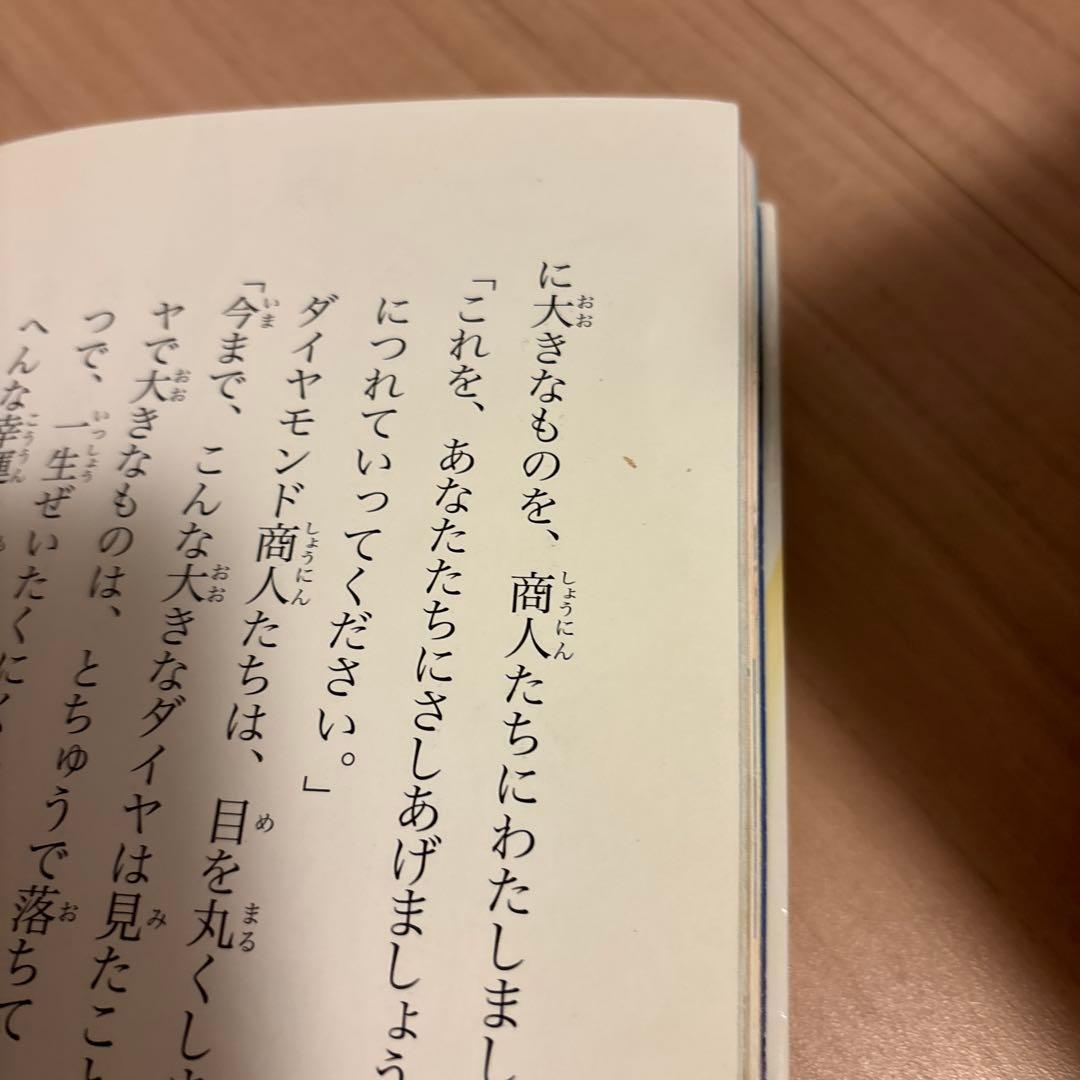 に大きなものを、商人たちにわたしまし
「これを、あなたたちにさしあげましょう
につれていってください。」
ダイヤモンド商人たちは、目を丸くし
「今まで、こんな大きなダイヤは見たこと
ヤで大きなものは、とちゅうで落ちて
つで、一生ぜいたくに
へんな幸運